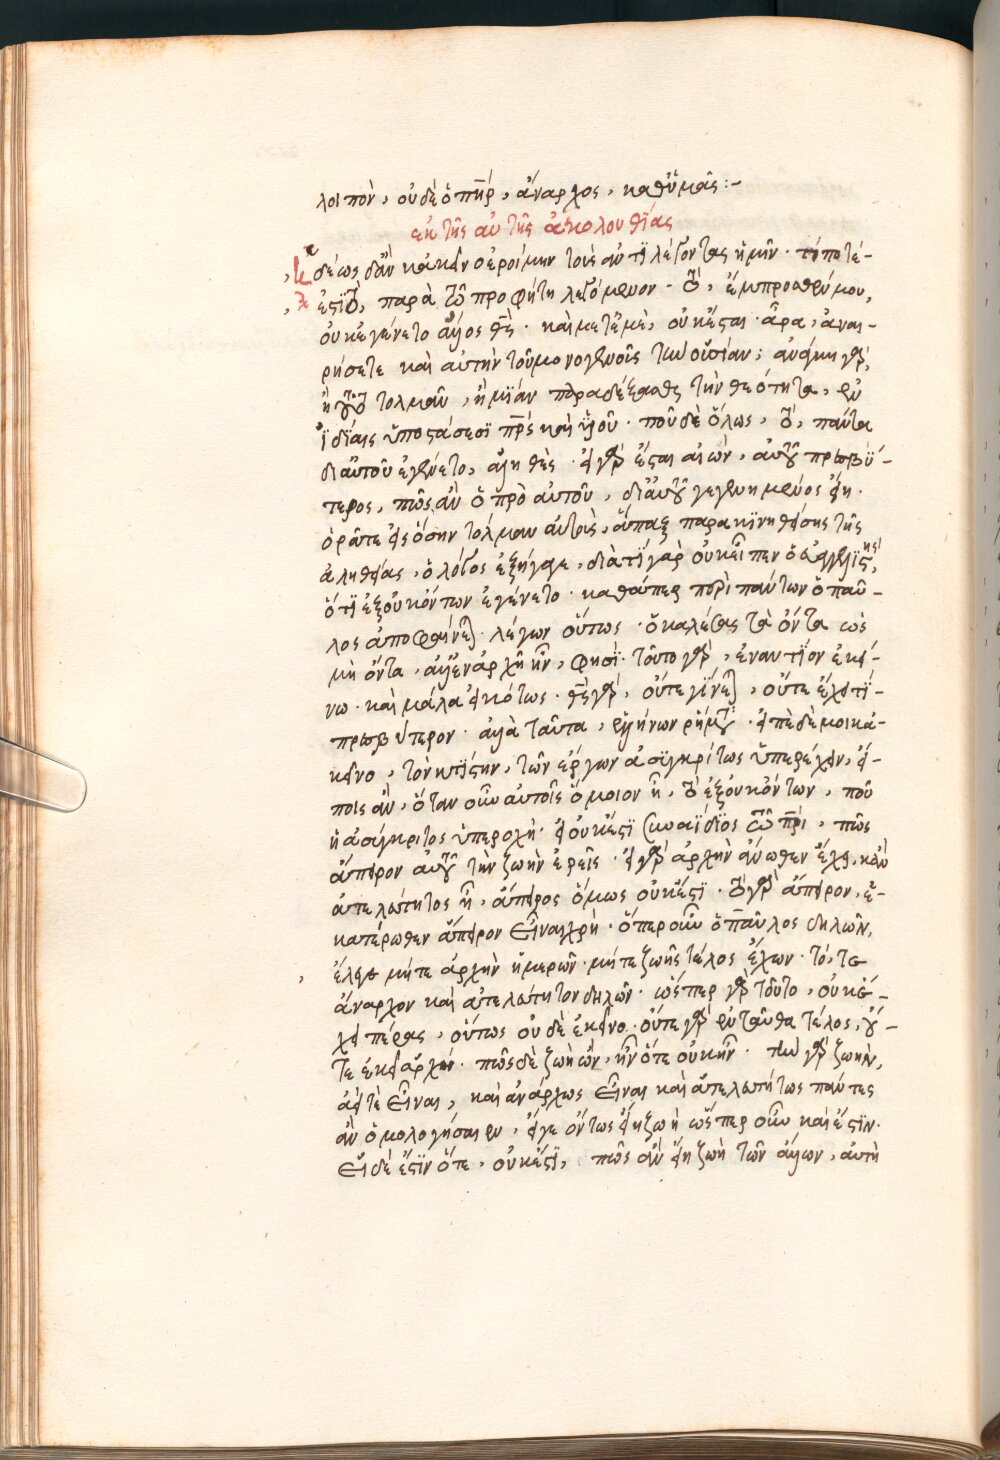 λοιπὸν, οὐδὲ ὁ πηρ, ἄναρχος, καθ' ὑμᾶς:-
ἐκ τῆς αὐτῆς ἀκολουθίας
δέως δ' ἂν κἀκεῖν ἐροίμην τοὺς ἀντιλέγοντας ἡμῖν. τί ποτέ
ἐστι τὸ, παρὰ τῷ προφήτῃ λεγόμενον. τὸ, ἔμπροσθέν μου,
οὐκ ἐγένετο ἄλλος θς. καὶ μετ' ἐμὲ, οὐκ ἔσται. ἆρα, ἀναι-
ρήσετε καὶ αὐτὴν τοῦ μονογενοῦς τὴν οὐσίαν; ἀνάγκη γὰρ,
ἢ τοῦτο τολμᾶν, ἢ μίαν παραδέξασθαι τὴν θεότητα, ἐν
ἰδίαις ὑποστάσεσι πρς καὶ ὑιοῦ. ποῦ δὲ ὅλως, τὸ, πάντα
δι' αὐτοῦ ἐγένετο, ἀληθὲς. εἰ γὰρ ἔσται αἰὼν, αὐτοῦ πρεσβύ-
τερος, πῶς ἂν ὁ πρὸ αὐτοῦ, δι' αὐτοῦ γεγενημένος εἴη.
ὁρᾶτε εἰς ὅσην τόλμαν αὐτοὺς, ἅπαξ παρακινηθείσης τῆς
ἀληθείας, ὁ λόγος ἐξήγαγε, διὰ τί γὰρ οὐκ εἶπεν ὁ εὐαγγελιστὴς,
ὅτι ἐξ οὐκ ὄντων ἐγένετο. καθάπερ περὶ πάντων ὁ παῦ-
λος ἀποφαίνεται. λέγων οὕτως. ὁ καλέσας τὰ ὄντα ὡς
μὴ ὄντα, ἀλλ' ἐν ἀρχῇ ἦν, φησὶ. τοῦτο γὰρ, ἐναντίον ἐκεί-
νω. καὶ μάλα εἰκότως. θς γὰρ, οὔτε γίνεται, οὔτε ἔχει τί
πρεσβύτερον. ἀλλὰ ταῦτα, ἑλλήνων ῥήματα. εἰπὲ δέ μοι κἀ-
κεῖνο, τὸν κτίστην, τῶν ἔργων ἀσυγκρίτως ὑπερέχειν, εἴ-
ποις ἂν, ὅταν οὖν αὐτοῖς ὅμοιον ἦ, τὸ ἐξ οὐκ ὄντων, ποῦ
ἡ ἀσύγκριτος ὑπεροχή. εἰ οὐκ ἔστι συναΐδιος τῶ πρι, πῶς
ἄπειρον αὐτοῦ τὴν ζωὴν ἐρεῖς. εἰ γὰρ ἀρχὴν ἄνωθεν ἔχει, κἂν
ἀτελεύτητος ἦ, ἄπειρος ὅμως οὐκ ἔστι. τὸ γὰρ ἄπειρον, ἑ-
κατέρωθεν ἄπειρον εἶναι χρή. ὅπερ οὖν ὁ παῦλος δηλῶν,
ἔλεγε μήτε ἀρχὴν ἡμερῶν. μήτε ζωῆς τέλος ἔχων. τό, τε
ἄναρχον καὶ ἀτελεύτητον δηλῶν. ὥσπερ γὰρ τοῦτο, οὐκ ἔ-
χει πέρας, οὕτως οὐδὲ ἐκεῖνο. οὔτε γὰρ ἐνταῦθα τέλος, οὔ-
τε ἐκεῖ ἀρχή. πῶς δὲ ζωὴ ὢν, ἦν ὅτε οὐκ ἦν. τὴν γὰρ ζωὴν,
ἀεί τε εἶναι, καὶ ἀνάρχως εἶναι καὶ ἀτελευτήτως πάντες
ἂν ὁμολογήσαιεν, εἴγε ὄντως εἴη ζωὴ ὥσπερ οὖν καὶ ἔστιν.
εἰ δὲ ἔστιν ὅτε, οὐκ ἔστι, πῶς ἂν εἴη ζωὴ τῶν ἄλλων, αὐτὴ